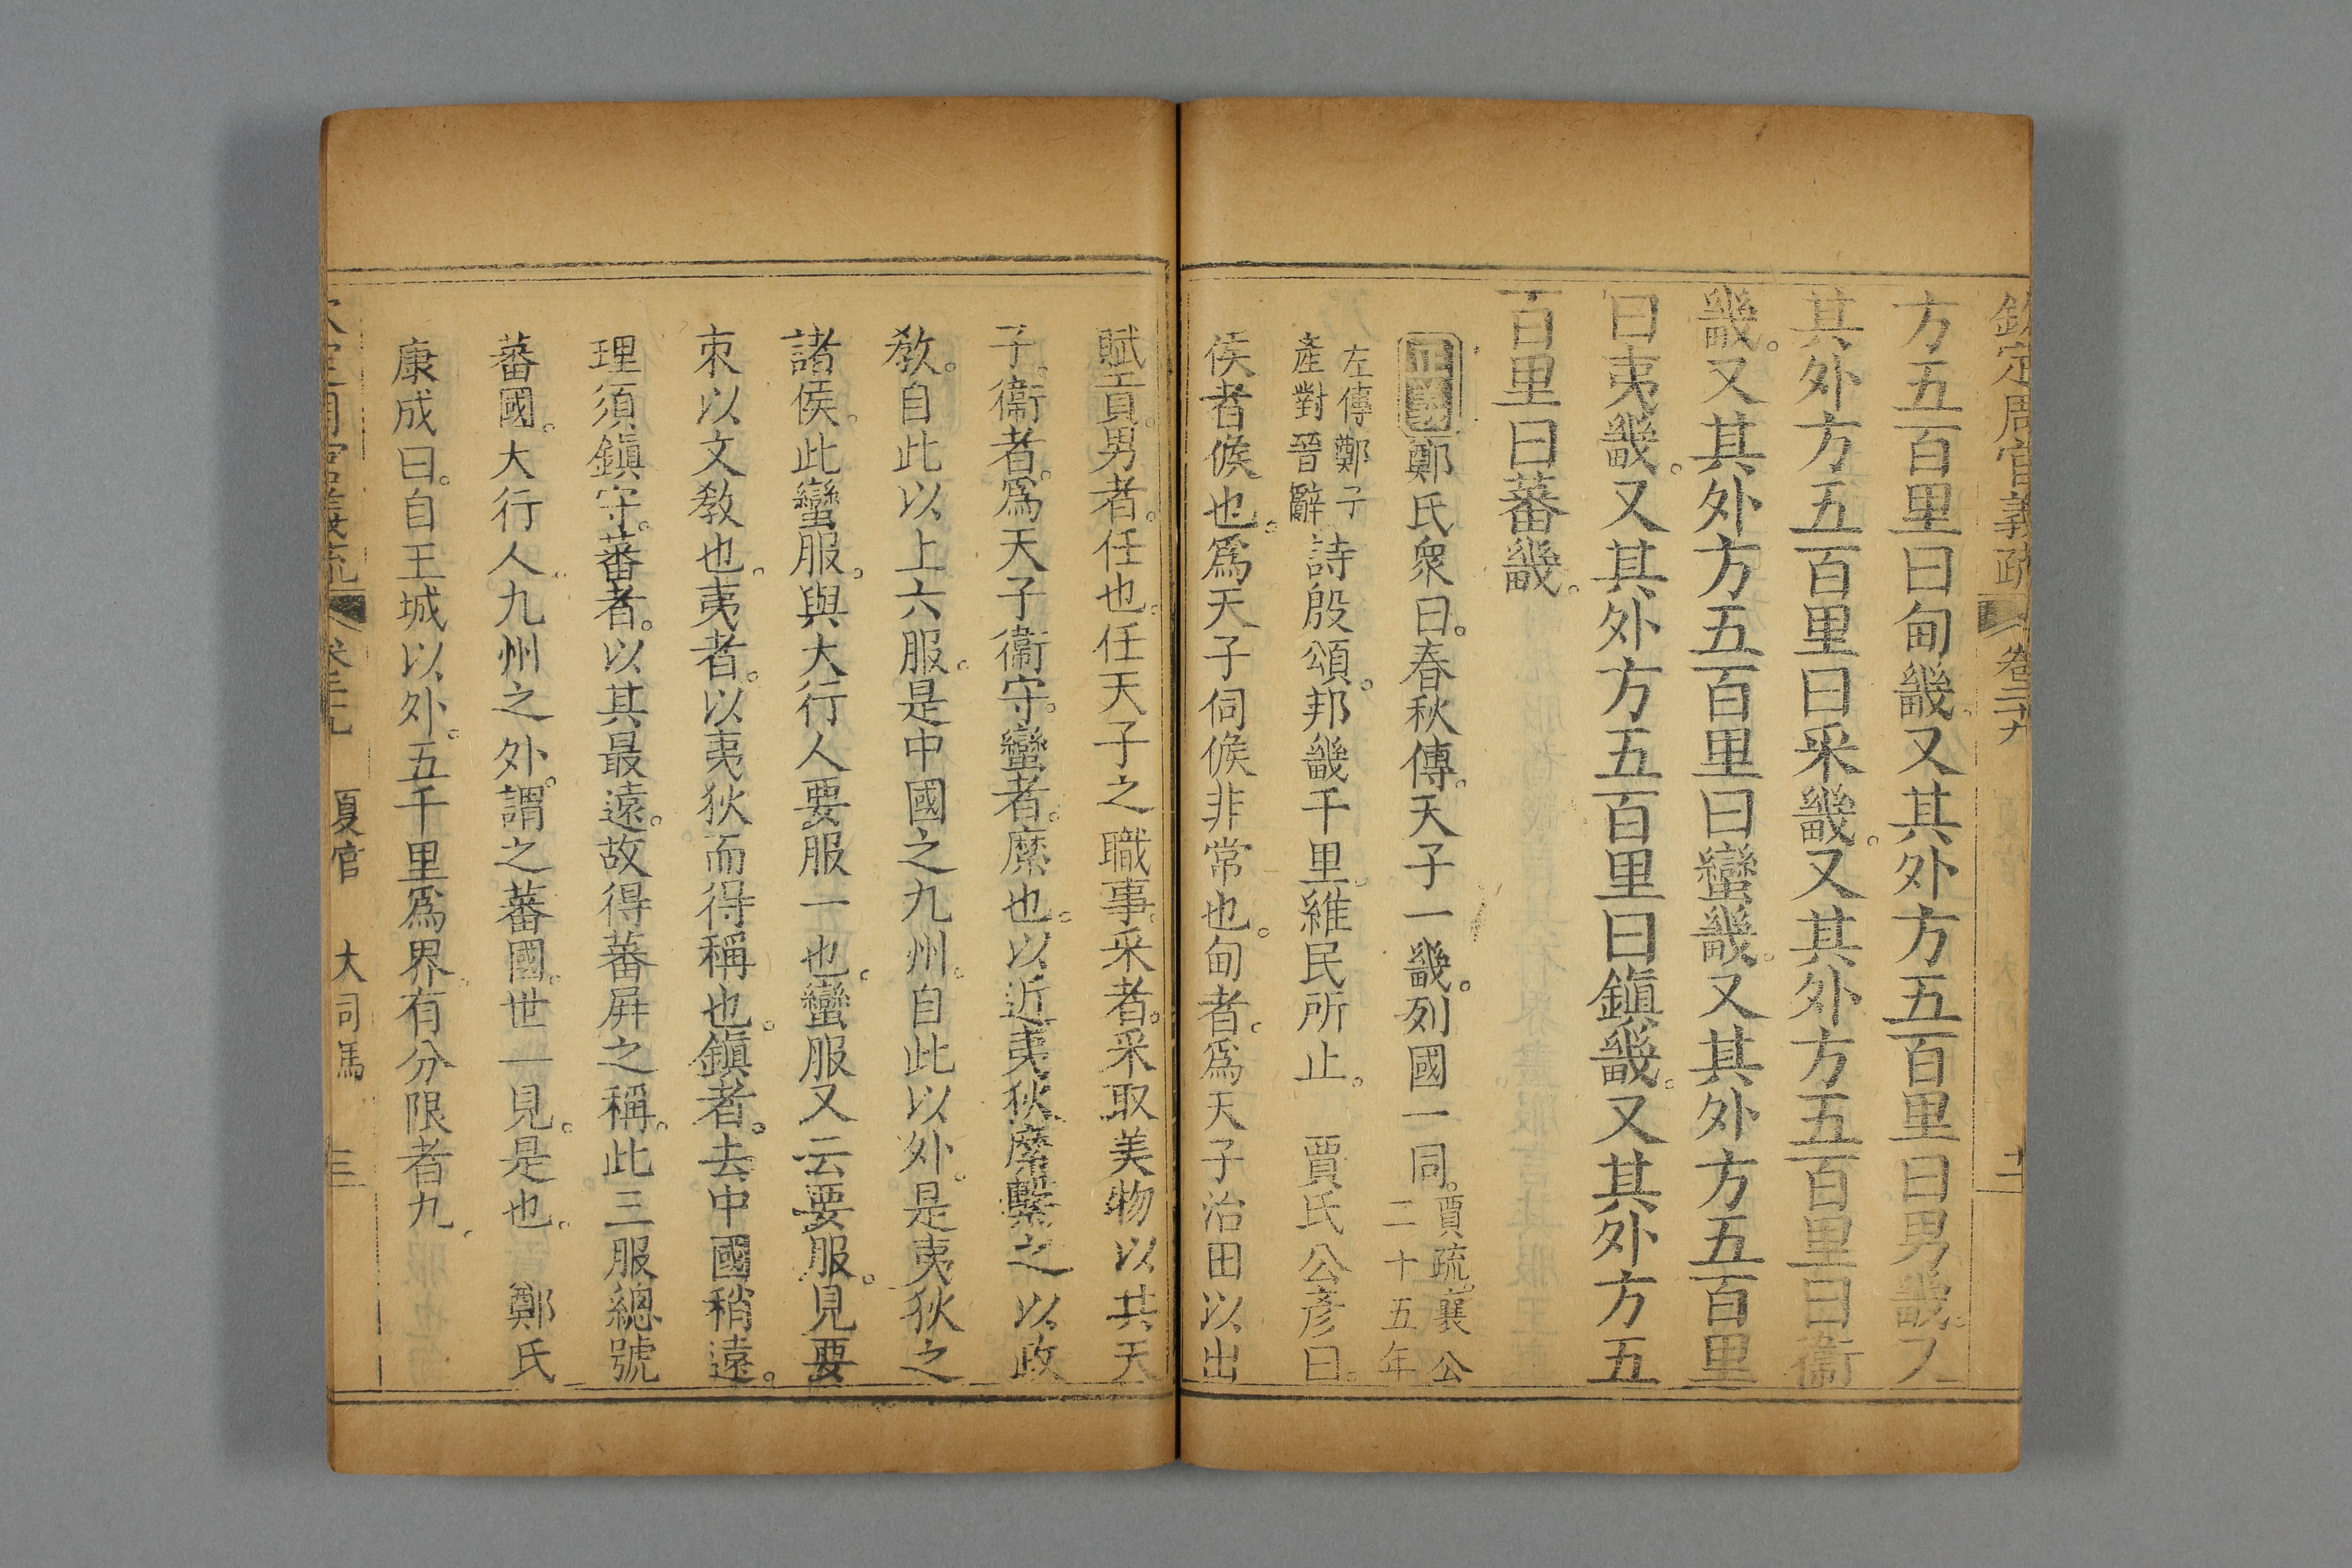 欽定周官義疏 卷二十九
方五百里曰甸畿。又其外方五百里曰男畿。又
其外方五百里曰采畿。又其外方五百里曰衞
畿。又其外方五百里曰蠻畿。又其外方五百里
曰夷畿。又其外方五百里曰鎭畿。又其外方五
百里曰蕃畿。
正義鄭氏衆曰。春秋傳。天子一畿。列國一同。賈疏。襄公二十五年
左傳鄭子產對晉辭詩殷頌。邦畿千里。維民所止。 賈氏公彥曰。
侯者。候也。爲天子伺候非常也。甸者。爲天子治田以出
賦貢。男者。任也。任天子之職事。采者。采取美物以共天
子。衞者。爲天子衞守。蠻者。縻也。以近夷狄。縻繫之以政
敎。自此以上六服。是中國之九州。自此以外。是夷狄之
諸侯。此蠻服。與大行人要服一也。蠻服又云要服。見要
朿以文敎也。夷者。以夷狄而得稱也。鎭者。去中國稍遠。
理須鎭守。蕃者。以其最遠。故得蕃屛之稱。此三服總號
蕃國。大行人。九州之外。謂之蕃國。世一見。是也。 鄭氏
康成曰。自王城以外。五千里爲界。有分限者九。
夏官 大司馬